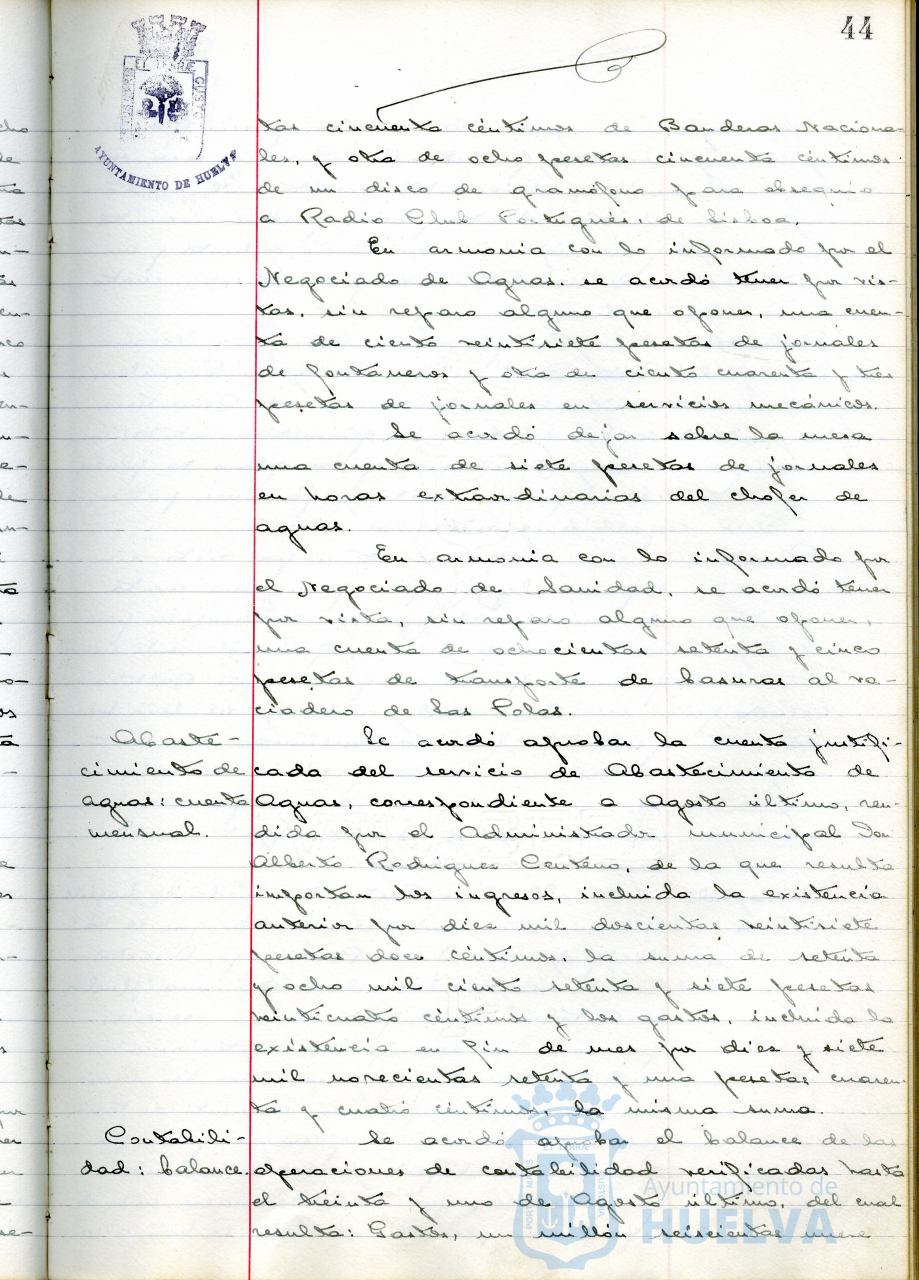 44
EL PUERTO Y CUSTODIA
AYUNTAMIENTO DE HUELVA
tas cincuenta céntimos de Banderas Naciona-
les, y otra de ocho pesetas cincuenta céntimos
de un disco de gramófono para obsequio
a Radio Club Portugués, de Lisboa.
En armonia con lo informado por el
Negociado de Aguas, se acordó tener por vis-
tas, sin reparo alguno que oponer, una cuen-
ta de ciento veintisiete pesetas de jornales
de fontaneros y otra de ciento cuarenta y tres
pesetas de jornales en servicios mecánicos.
Se acordó dejar sobre la mesa
una cuenta de siete pesetas de jornales
en horas extraordinarias del chofer de
aguas.
En armonia con lo informado por
el Negociado de Sanidad, se acordó tener
por vista, sin reparo alguno que oponer,
una cuenta de ochocientas setenta y cinco
pesetas de transporte de basuras al va-
ciadero de Las Polas.
Abaste-
cimiento de
aguas: cuenta
mensual.
Se acordó aprobar la cuenta justifi-
cada del servicio de Abastecimiento de
Aguas, correspondiente a Agosto último, ren-
dida por el Administrador municipal Don
Alberto Rodriguez Centeno, de la que resulta
importan los ingresos, incluida la existencia
anterior por diez mil doscientas veintisiete
pesetas doce céntimos, la suma de setenta
y ocho mil ciento setenta y siete pesetas
veinticuatro céntimos y los gastos, incluida la
existencia en fin de mes por diez y siete
mil novecientas setenta y una pesetas cuaren-
ta y cuatro céntimos, la misma suma.
Contabili-
dad: balance.
Se acordó aprobar el balance de las
operaciones de contabilidad verificadas hasta
el treinta y uno de Agosto último, del cual
resulta: Gastos, un millón seiscientas nueve
Ayuntamiento de
HUELVA